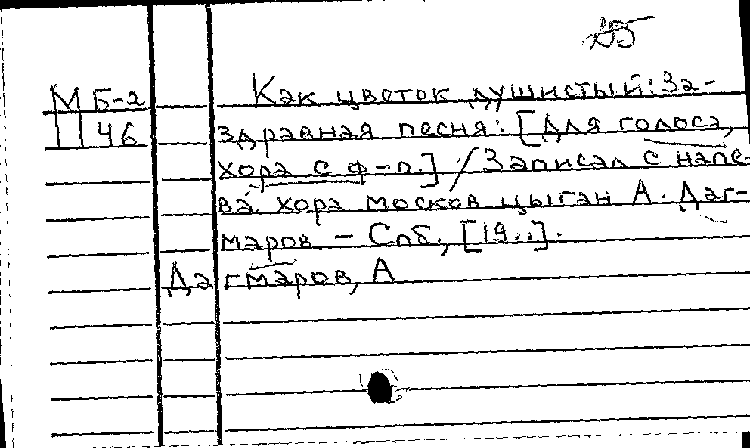 255
М Б-2
1146
Как цветок душистый: За-
здравная песня: [Для голоса,
хора с ф-п.] / Записал с напе-
ва хора москов цыган А. Даг-
маров – Спб., [19..].
Дагмаров, А